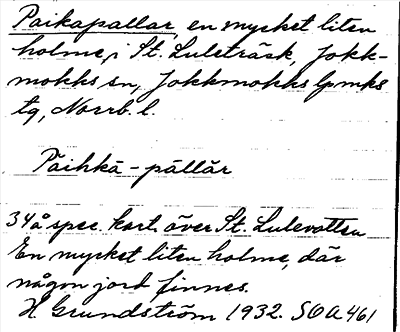 Paikapallar, en mycket liten
holme, i St. Luleträsk, Jokk-
mokks sn, Jokkmokks lpmks
tg, Norrb. l.
Päihkä - pällår
34å spec. kart. över St. Lulevatten
En mycket liten holme, där
någon jord finnes.
H Grundström 1932. SOA 461